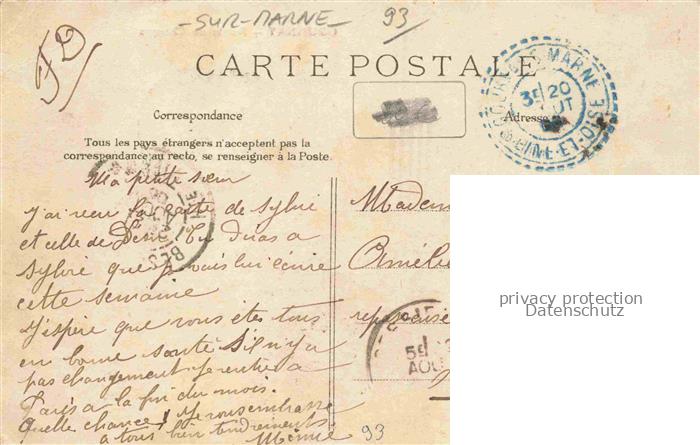 -SUR-MARNE 93
FD
CARTE POSTALE
Correspondance
Adresse
Tous les pays étrangers n'acceptent pas la
correspondance au recto, se renseigner à la Poste.
GOURNAY S MARNE SEINE-ET-OISE
3E 20
OUT
Ma petite sœur
j'ai reçu la carte de Sylvie
et celle de Denis. Tu diras a
Sylvie que je vais lui écrire
cette semaine
J'espère que vous êtes tous
en bonne santé S'il n'y a
pas changement je rentre a
Paris a la fin du mois.
Quelle chance! Je vous embrasse
a tous bien tendrement
Madem
Amélie
repasseuse
59
AOU
93
privacy protection
Datenschutz